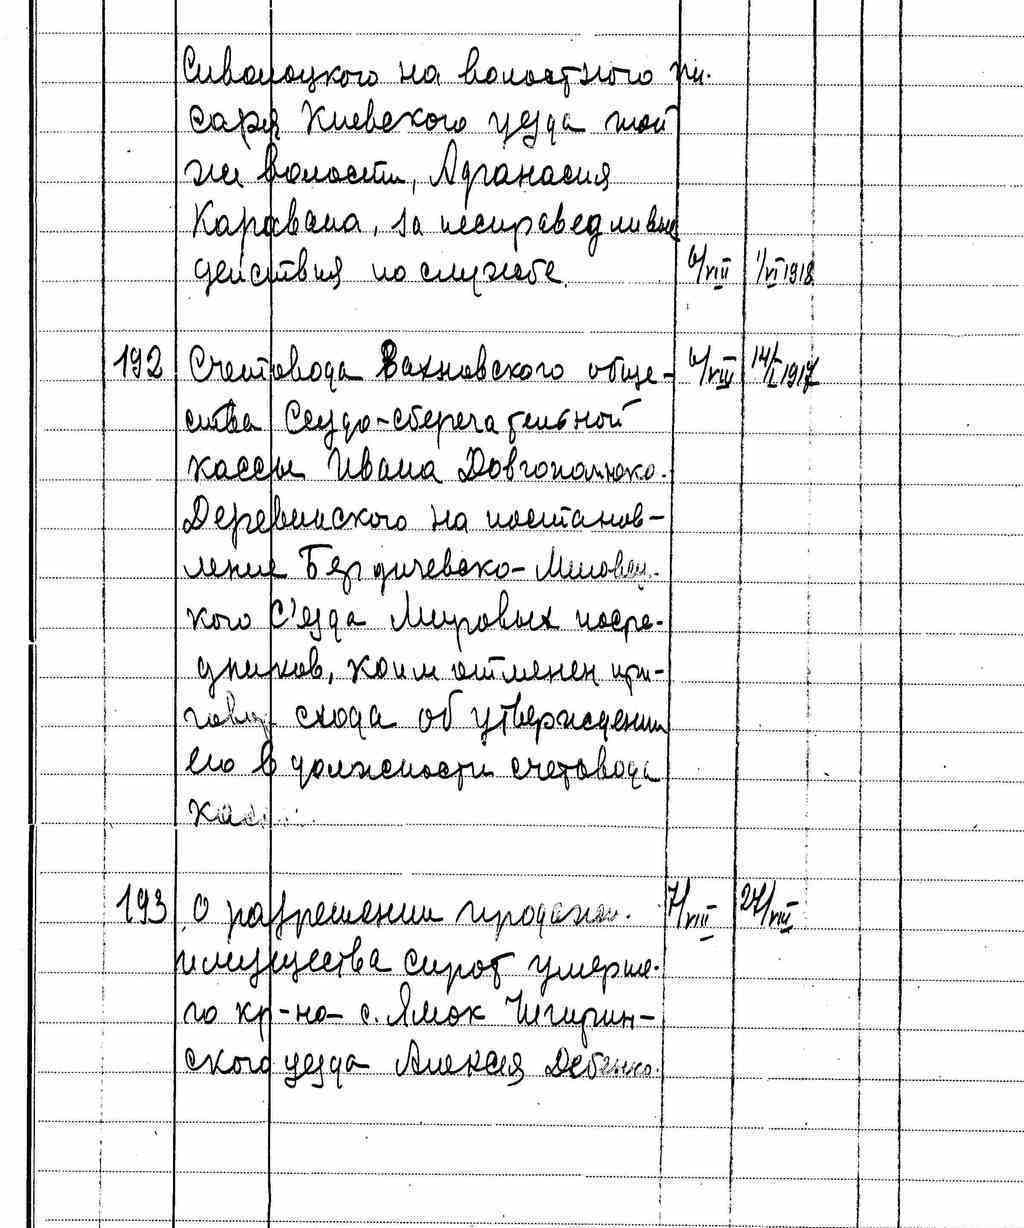 Сиволоцкого на волостного пи-
саря Киевского уезда той
же волости, Афанасия
Каравана, за несправедливые
действия по службе. 6/VIII 1/VI 1918
192 Счетовода Вахновского обще- 6/VIII 14/I 1917
ства Ссудо-сберегательной
кассы Ивана Довгополюко-
Деревинского на постанов-
ление Бердичевско-
кого С'езда Мировых посре-
дников, коим отменен при-
говор схода об утверждении
его в должности счетовода
193 О разрешении продажи 7/VIII 27/VIII
имущества сирот умерше-
го кр-на с. Ямок Чигирин-
ского уезда Алексея